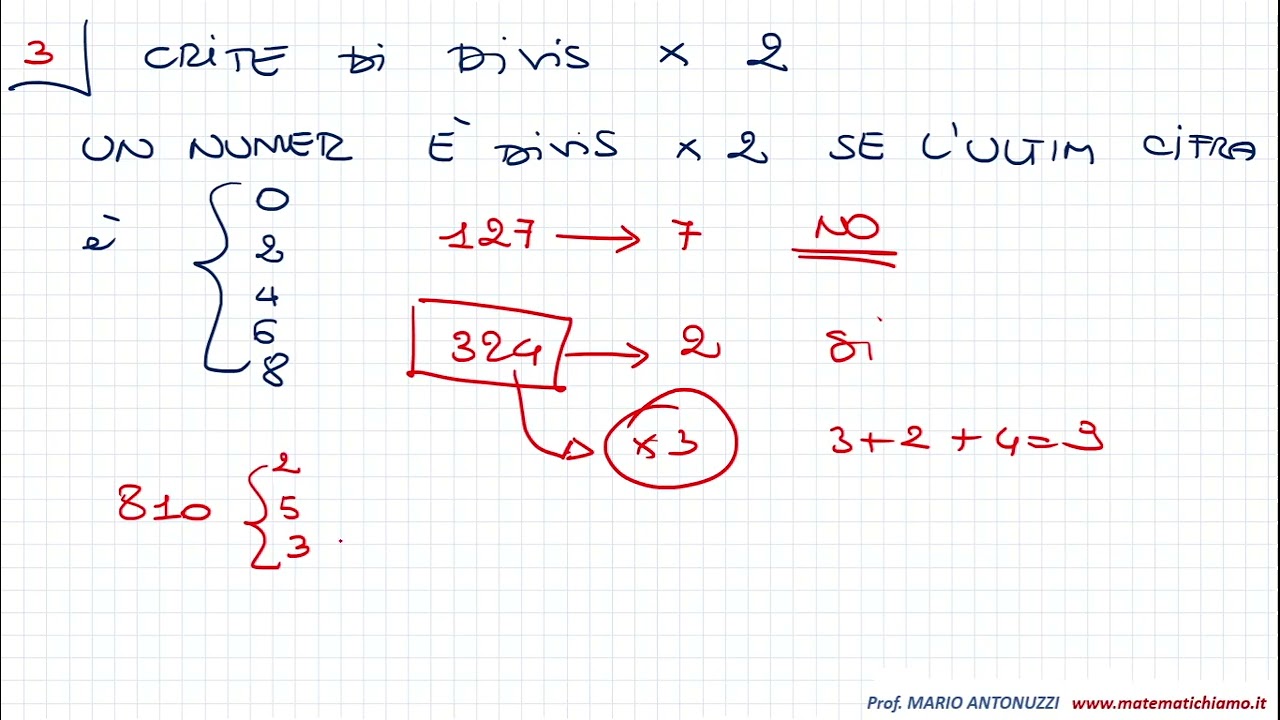 3 CRITE DI DIVIS × 2
UN NUMER È DIVIS × 2 SE L'ULTIM CIFRA
è { 0 2 4 6 8
127 → 7 NO
324 → 2 Si
× 3 3+2+4=9
810 { 2 5 3
Prof. MARIO ANTONUZZI www.matematichiamo.it